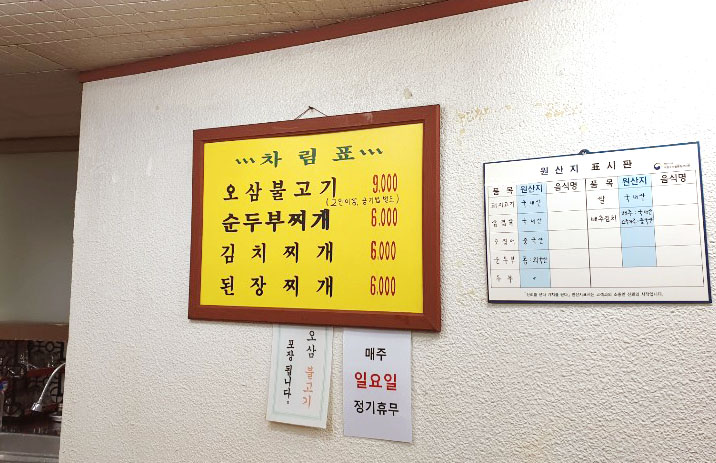 차림표
오삼불고기 9.000
(2인이상, 공기밥 별도)
순두부찌개 6.000
김치찌개 6.000
된장찌개 6.000
오삼 불고기
포장됩니다.
매주
일요일
정기휴무
원산지 표시판
품목 원산지 음식명 품목 원산지 음식명
돼지고기 국내산 쌀 국내산
국내산 배추김치 배추:국내산
오징어 중국산
순두부
두부